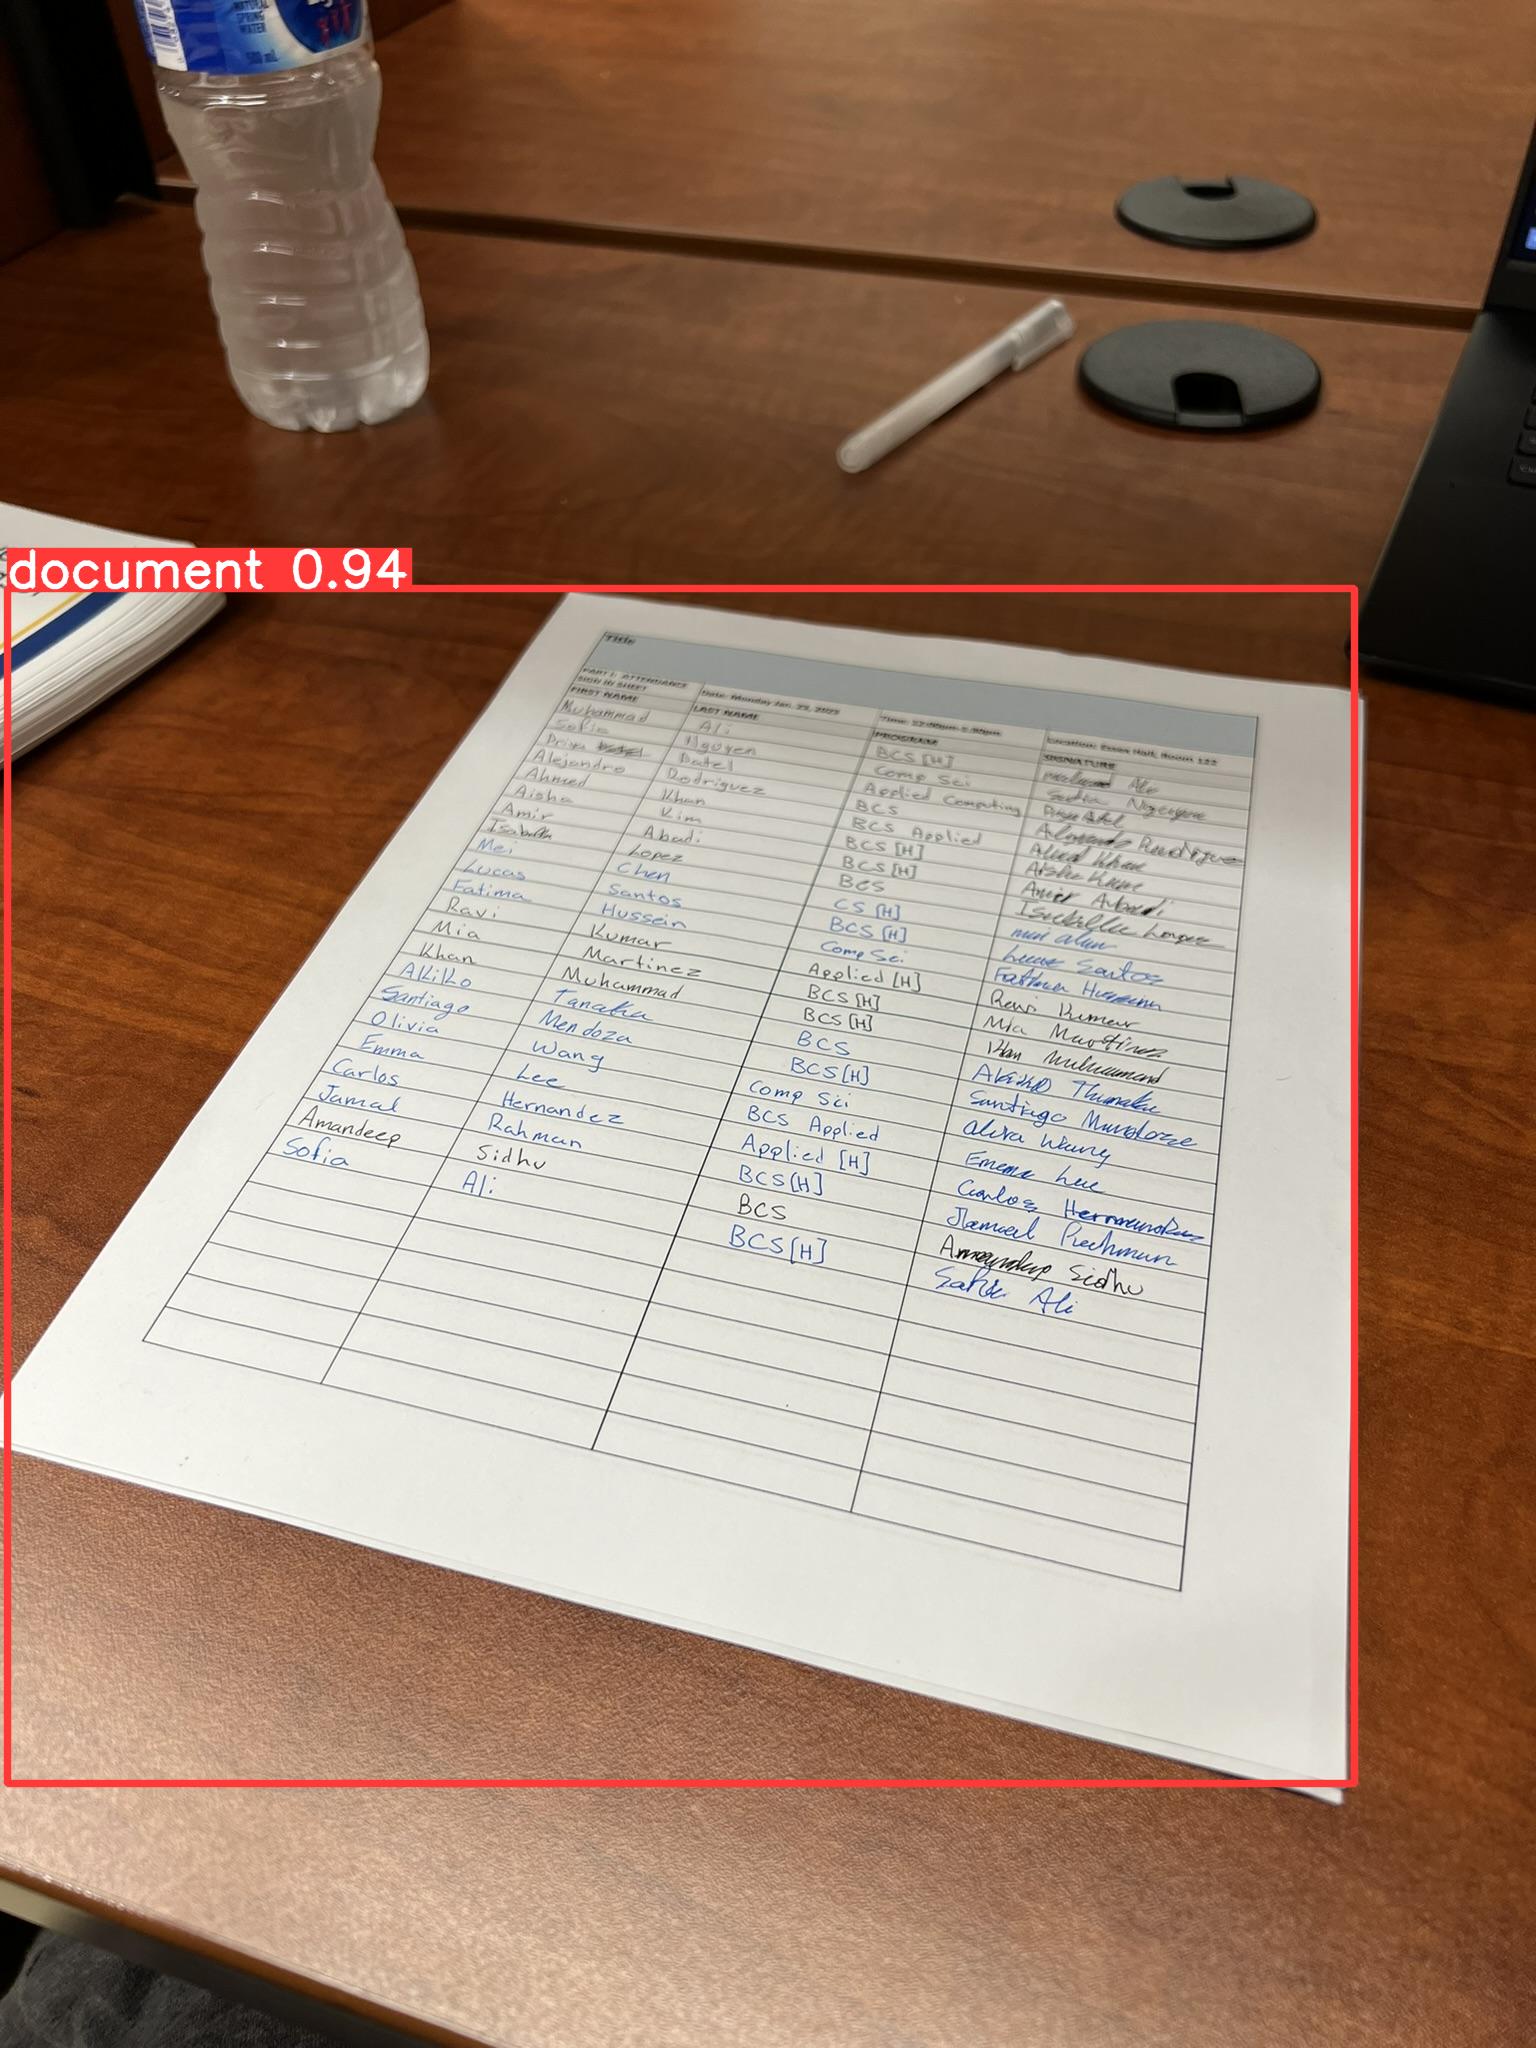 NATURAL
SPRING
WATER
500 mL
document 0.94
Title
PART I: ATTENDANCE
SIGN IN SHEET
Date: Monday Jan. 23, 2023
Time: 12:00pm-1:30pm
Location: Essex Hall, Room 122
FIRST NAME LAST NAME PROGRAM SIGNATURE
Muhammad Ali BCS [H] Ali
Sofia Nguyen Comp Sci Sofia
Priya Patel Applied Computing Priya Patel
Alejandro Rodriguez BCS
Ahmed Khan BCS Applied Ahmed Khan
Aisha Kim BCS [H] Aisha
Amir Abadi BCS [H] Amir Abadi
Isabella Lopez BCS Isabella Lopez
Mei Chen CS [H] mei
Lucas Santos BCS [H] Santos
Fatima Hussein Comp Sci Fatima
Ravi Kumar Applied [H] Ravi Kumar
Mia Martinez BCS [H] Mia Martinez
Khan Muhammad BCS [H] Khan Muhammad
Akiko Tanaka BCS Akiko
Santiago Mendoza BCS [H] Santiago
Olivia Wang Comp Sci Wang
Emma Lee BCS Applied
Carlos Hernandez Applied [H] Carlos
Jamal Rahman BCS [H]
Amandeep Sidhu BCS Sidhu
Sofia Ali BCS [H] Ali